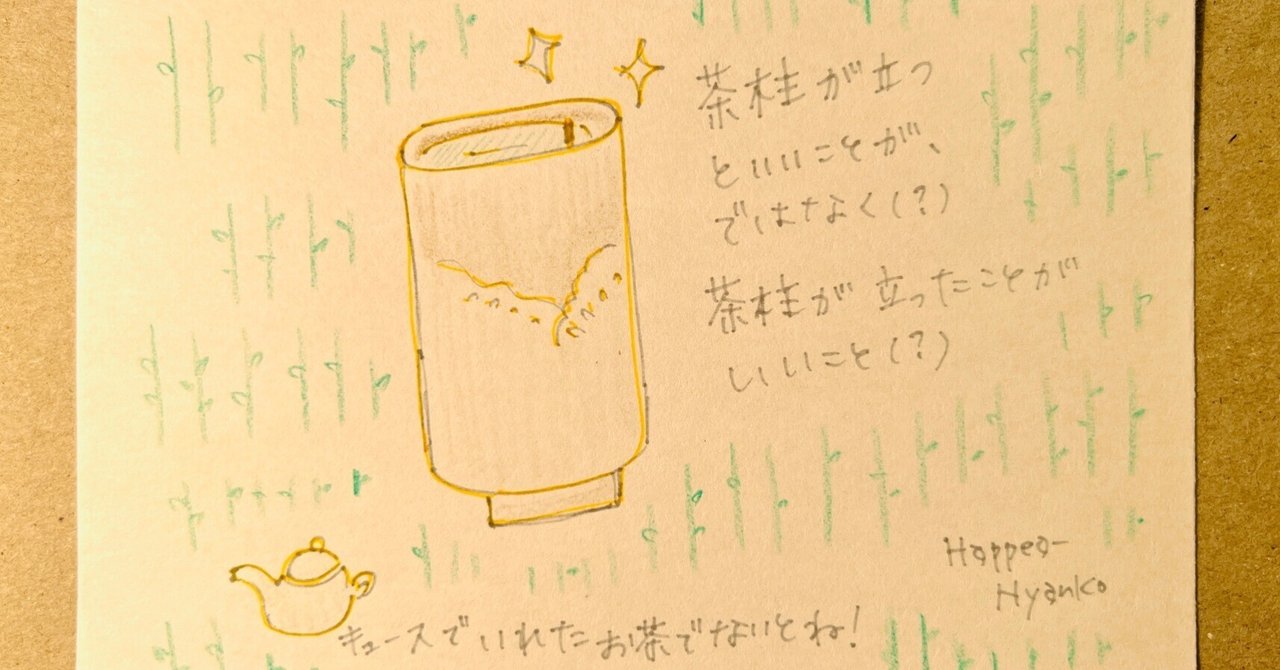 茶柱が立つ
といいことが、
ではなく(?)
茶柱が立ったことが
いいこと(?)
Happea-
Hyanko
キュースでいれたお茶でないとね!